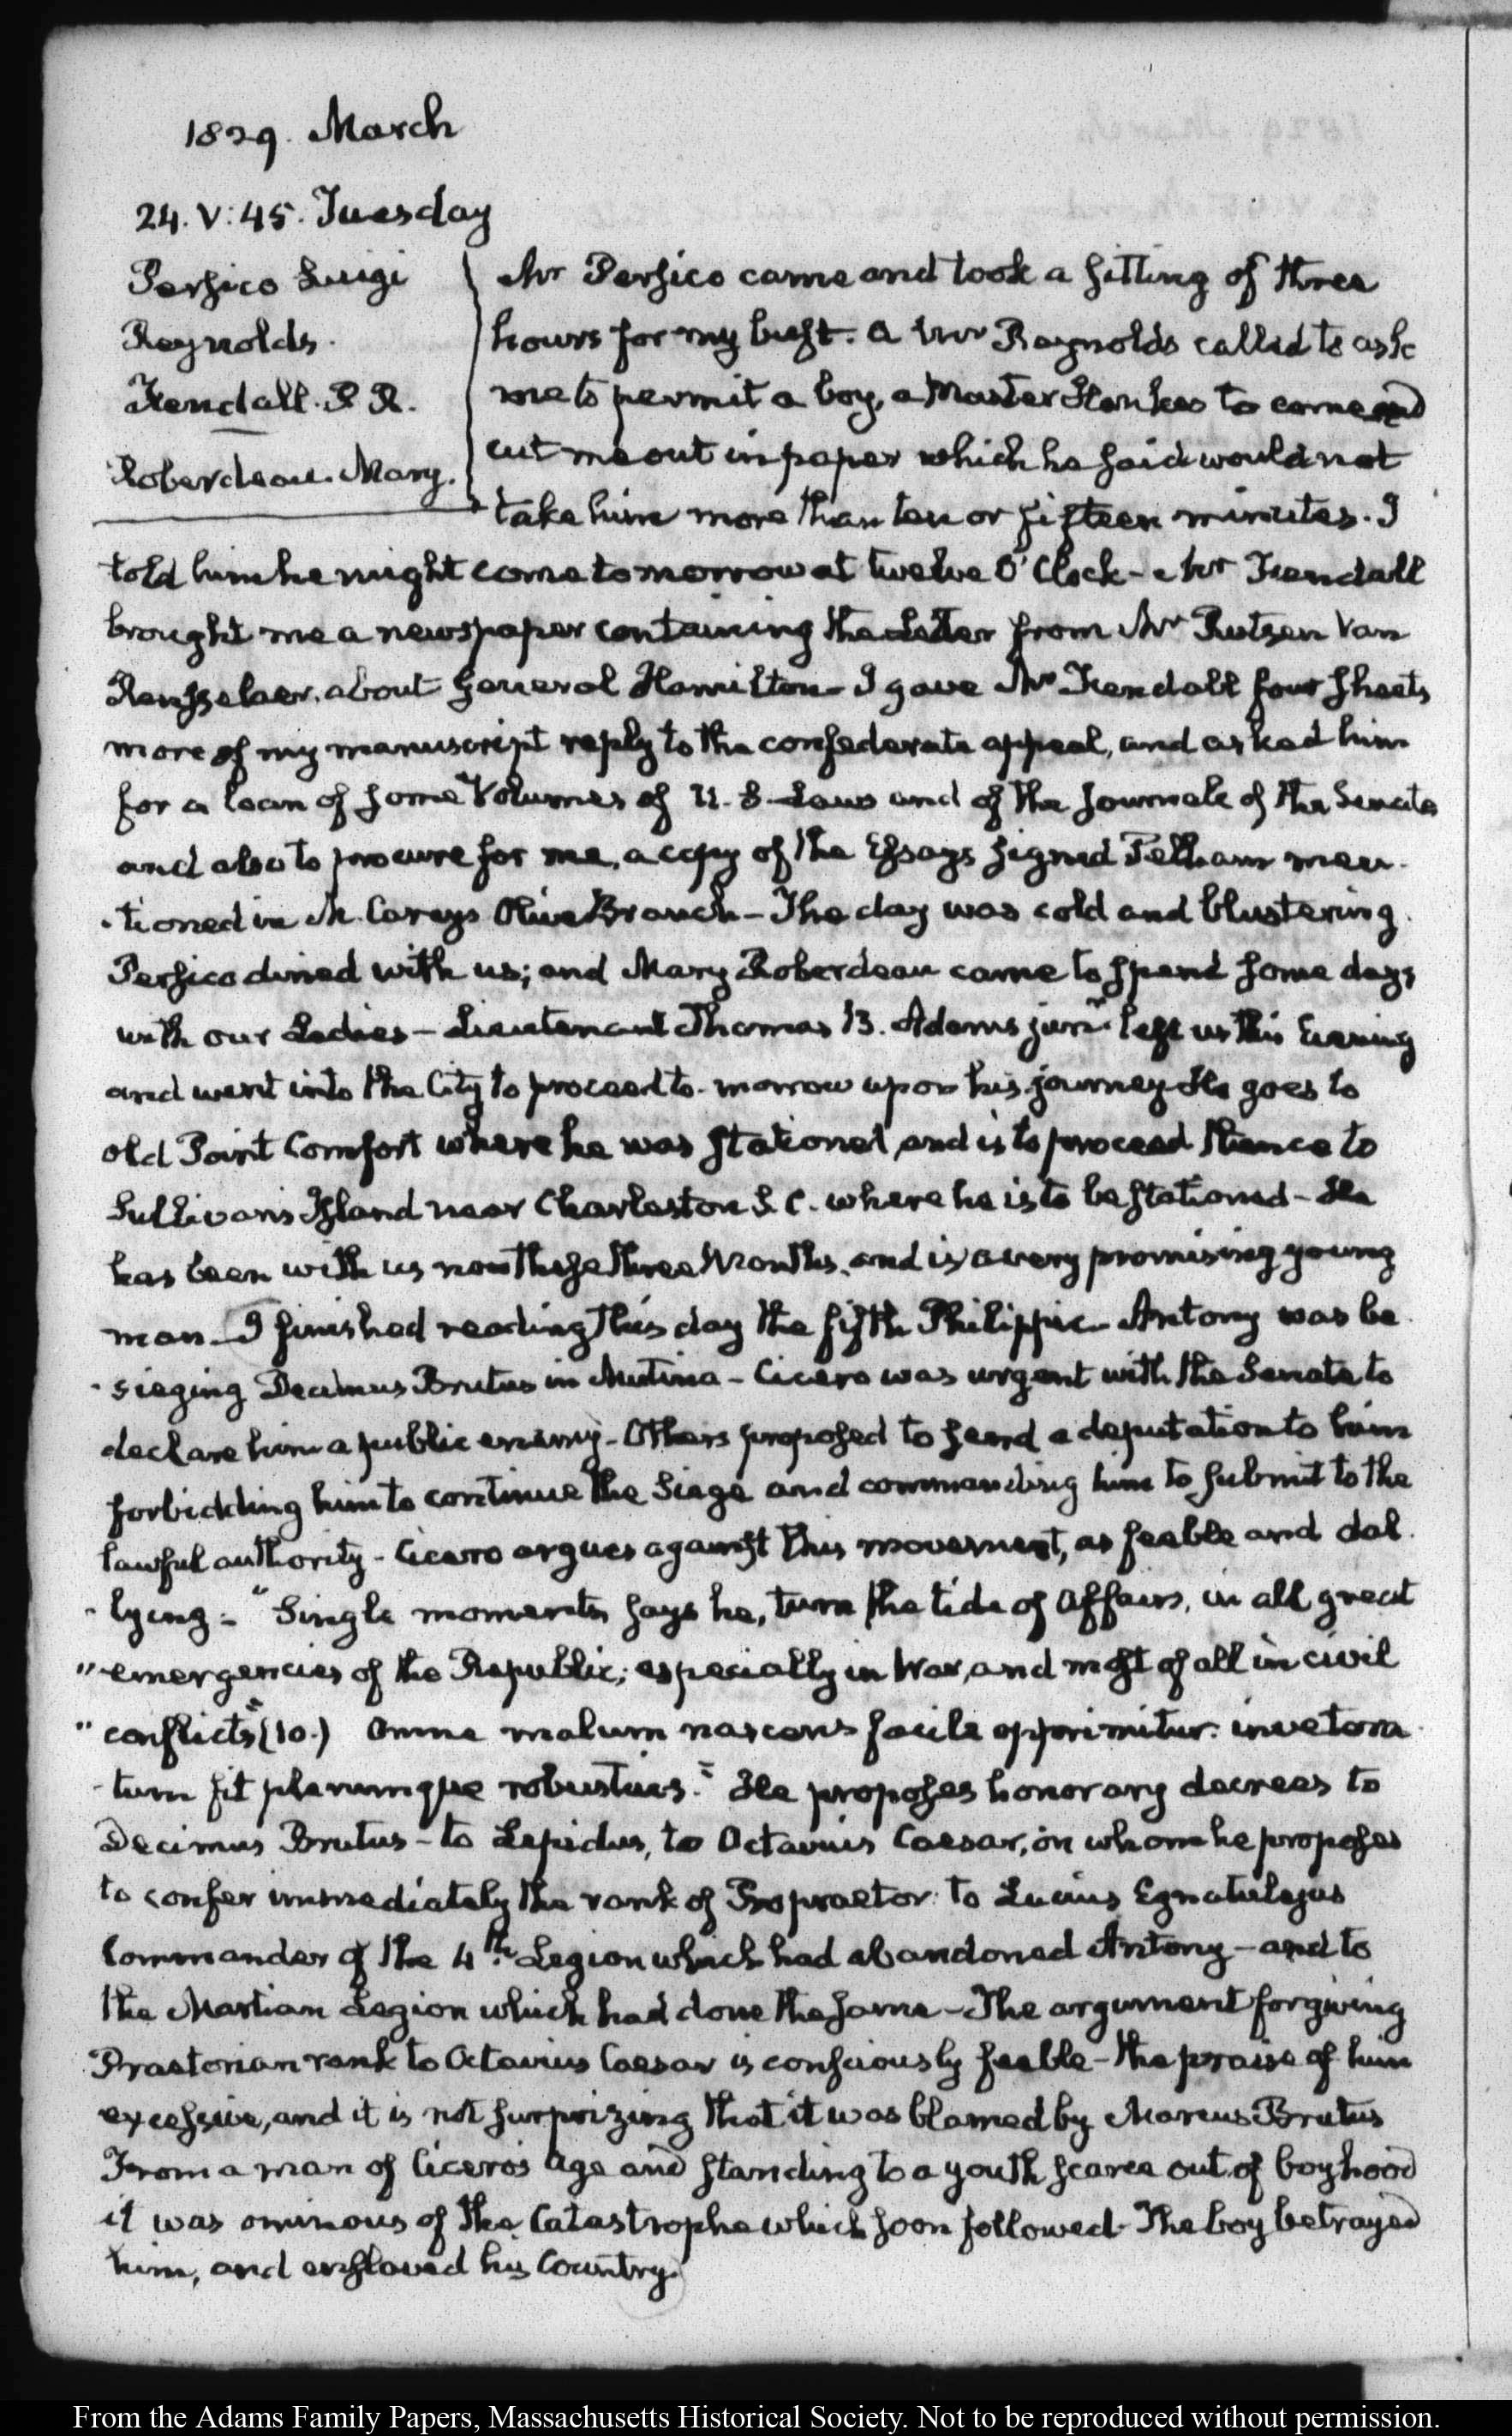 1829. March
24. V: 45. Tuesday
Persico Luigi
Reynolds.
Kendall. P R.
Roberdeau. Mary.
Mr Persico came and took a sitting of three
hours for my bust. A Mr Reynolds called to ask
me to permit a boy, a Master Hankes to come and
cut me out in paper which he said would not
take him more than ten or fifteen minutes. I
told him he might come tomorrow at twelve O'Clock - Mr Kendall
brought me a newspaper containing the Letter from Mr Rutsen Van
Rensselaer, about General Hamilton - I gave Mr Kendall four sheets
more of my manuscript reply to the confederate appeal, and asked him
for a loan of some Volumes of U. S. Laws and of the Journals of the Senate
and also to procure for me, a copy of the Essays signed Pelham men-
-tioned in M. Careys Olive Branch - The day was cold and blustering.
Persico dined with us; and Mary Roberdeau came to spend some days
with our Ladies - Lieutenant Thomas B. Adams junr. left us this Evening
and went into the City to proceed to-morrow upon his journey. He goes to
old Point Comfort where he was stationed, and is to proceed thence to
Sullivan's Island near Charleston S. C. where he is to be stationed - He
has been with us now these three Months, and is a very promising young
man - I finished reading this day the fifth Philippic - Antony was be-
-sieging Decimus Brutus in Mutina - Cicero was urgent with the Senate to
declare him a public enemy - Others proposed to send a deputation to him
forbidding him to continue the Siege and commanding him to submit to the
lawful authority - Cicero argues against this movement, as feeble and dal-
-lying - "Single moments, says he, turn the tide of Affairs, in all great
"emergencies of the Republic; especially in War, and most of all in civil
"conflicts" (10.) Omne malum nascens facile opprimitur: invetera-
-tum fit plerumque robustius." He proposes honorary decrees to
Decimus Brutus - to Lepidus, to Octavius Caesar, on whom he proposes
to confer immediately the rank of Propraetor: to Lucius Egnatulejus
Commander of the 4th. Legion which had abandoned Antony - and to
the Martian Legion which had done the same - The argument for giving
Praetorian rank to Octavius Caesar is consciously feeble - the praise of him
excessive, and it is not surprizing that it was blamed by Marcus Brutus
From a man of Cicero's age and standing to a youth scarce out of boyhood
it was ominous of the Catastrophe which soon followed. The boy betrayed
him, and enslaved his Country.
From the Adams Family Papers, Massachusetts Historical Society. Not to be reproduced without permission.